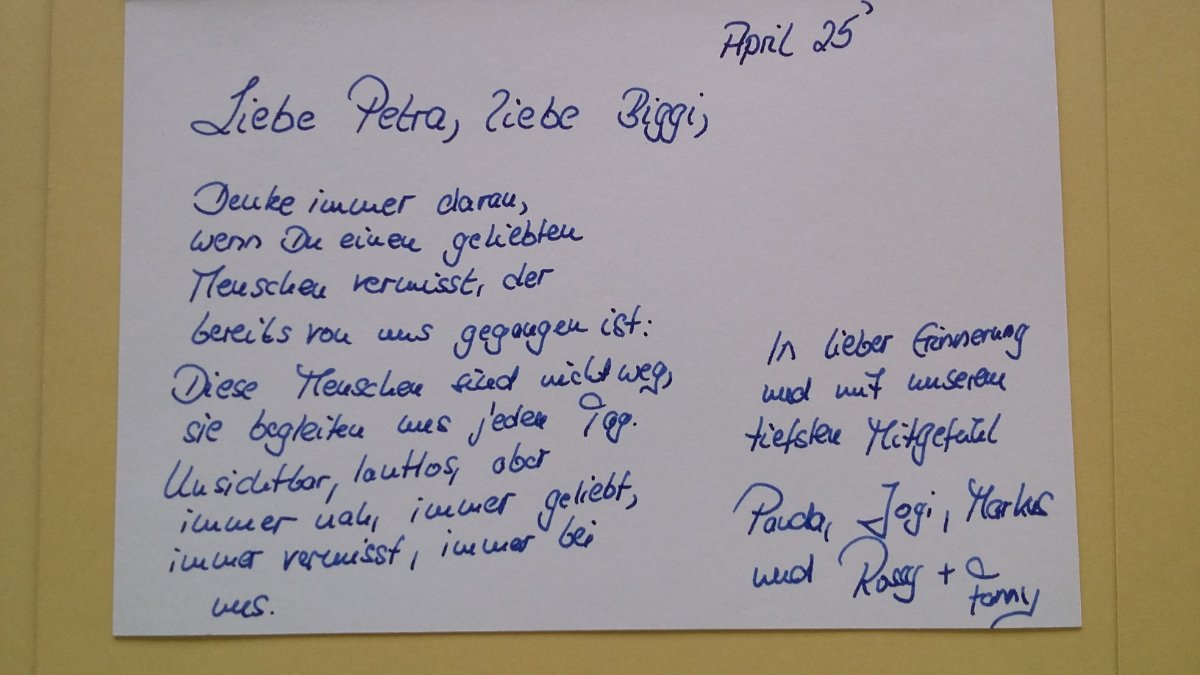 April 25'
Liebe Petra, liebe Biggi,
Denke immer daran,
wenn Du einen geliebten
Menschen vermisst, der
bereits von uns gegangen ist:
Diese Menschen sind nicht weg,
sie begleiten uns jeden Tag.
Unsichtbar, lautlos, aber
immer nah, immer geliebt,
immer vermisst, immer bei
uns.
In lieber Erinnerung
und mit unserem
tiefsten Mitgefühl
Jogi, Markus
und +